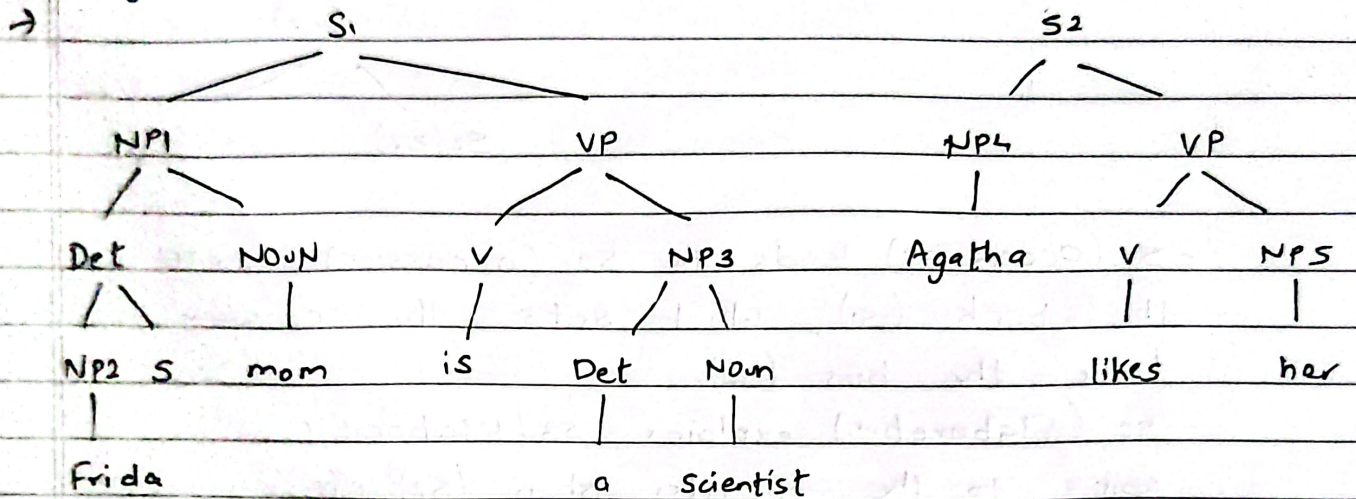 → S1 S2
NP1 VP NP4 VP
Det NOUN V NP3 Agatha V NP5
NP2 S mom is Det Noun likes her
Frida a scientist